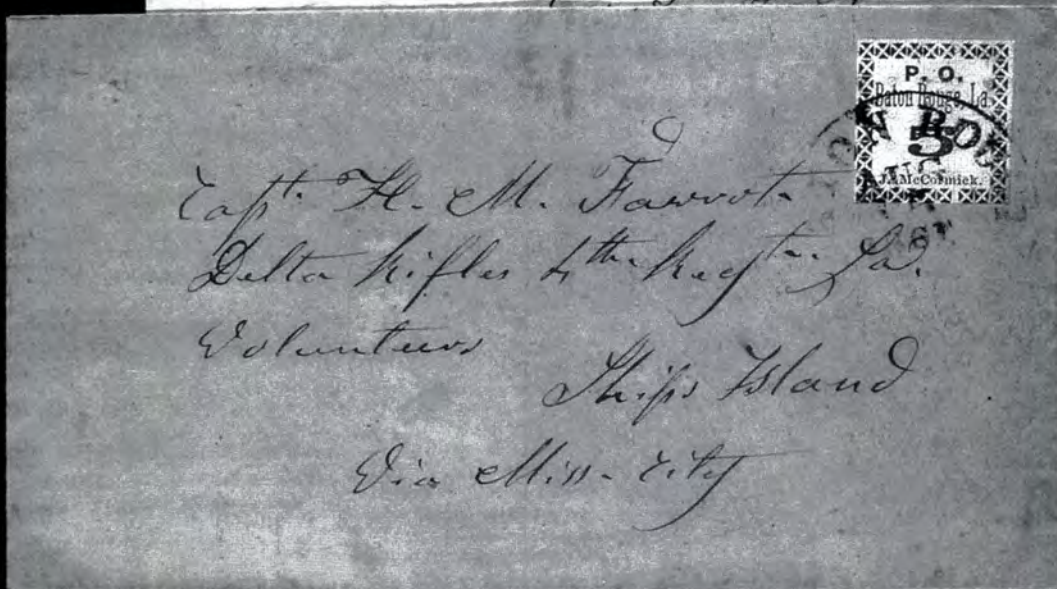 P. O.
Baton Rouge, La.
5
J. McCormick.
Capt. H. M. Favrot.
Delta Rifles 4th Regtn. La.
Volunteers
Ships Island
Via Miss. City